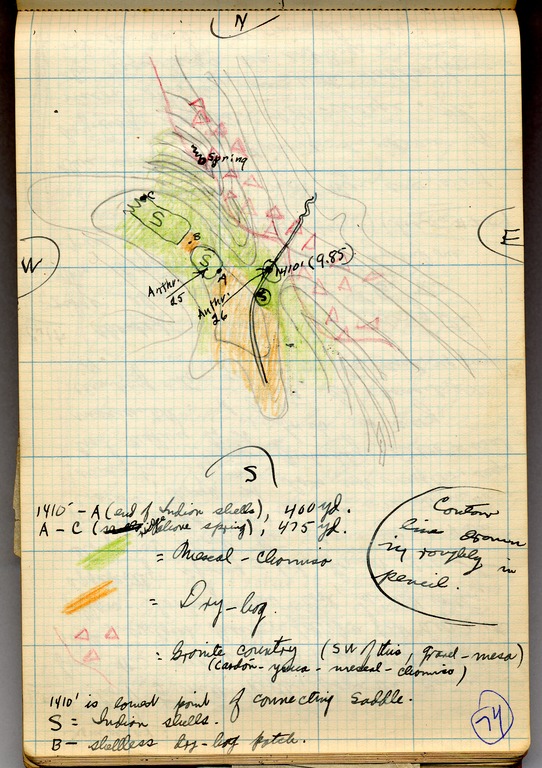 N
Spring
C
S
B
S
W
E
A
1410' (9.85)
Anthr.
25
Anthr.
26
S
S
1410' - A (end of Indian shells), 400 yd.
A - C (above spring), 475 yd.
= Mescal - chamiso
= Dry-bog.
= Granite country (SW of this, gravel-mesa)
(Cardón - yucca - mescal - chamiso)
Contour
line drawn
in roughly in
pencil.
1410' is lowest point of connecting saddle.
S = Indian shells.
B - shellless dry-bog patch.
74